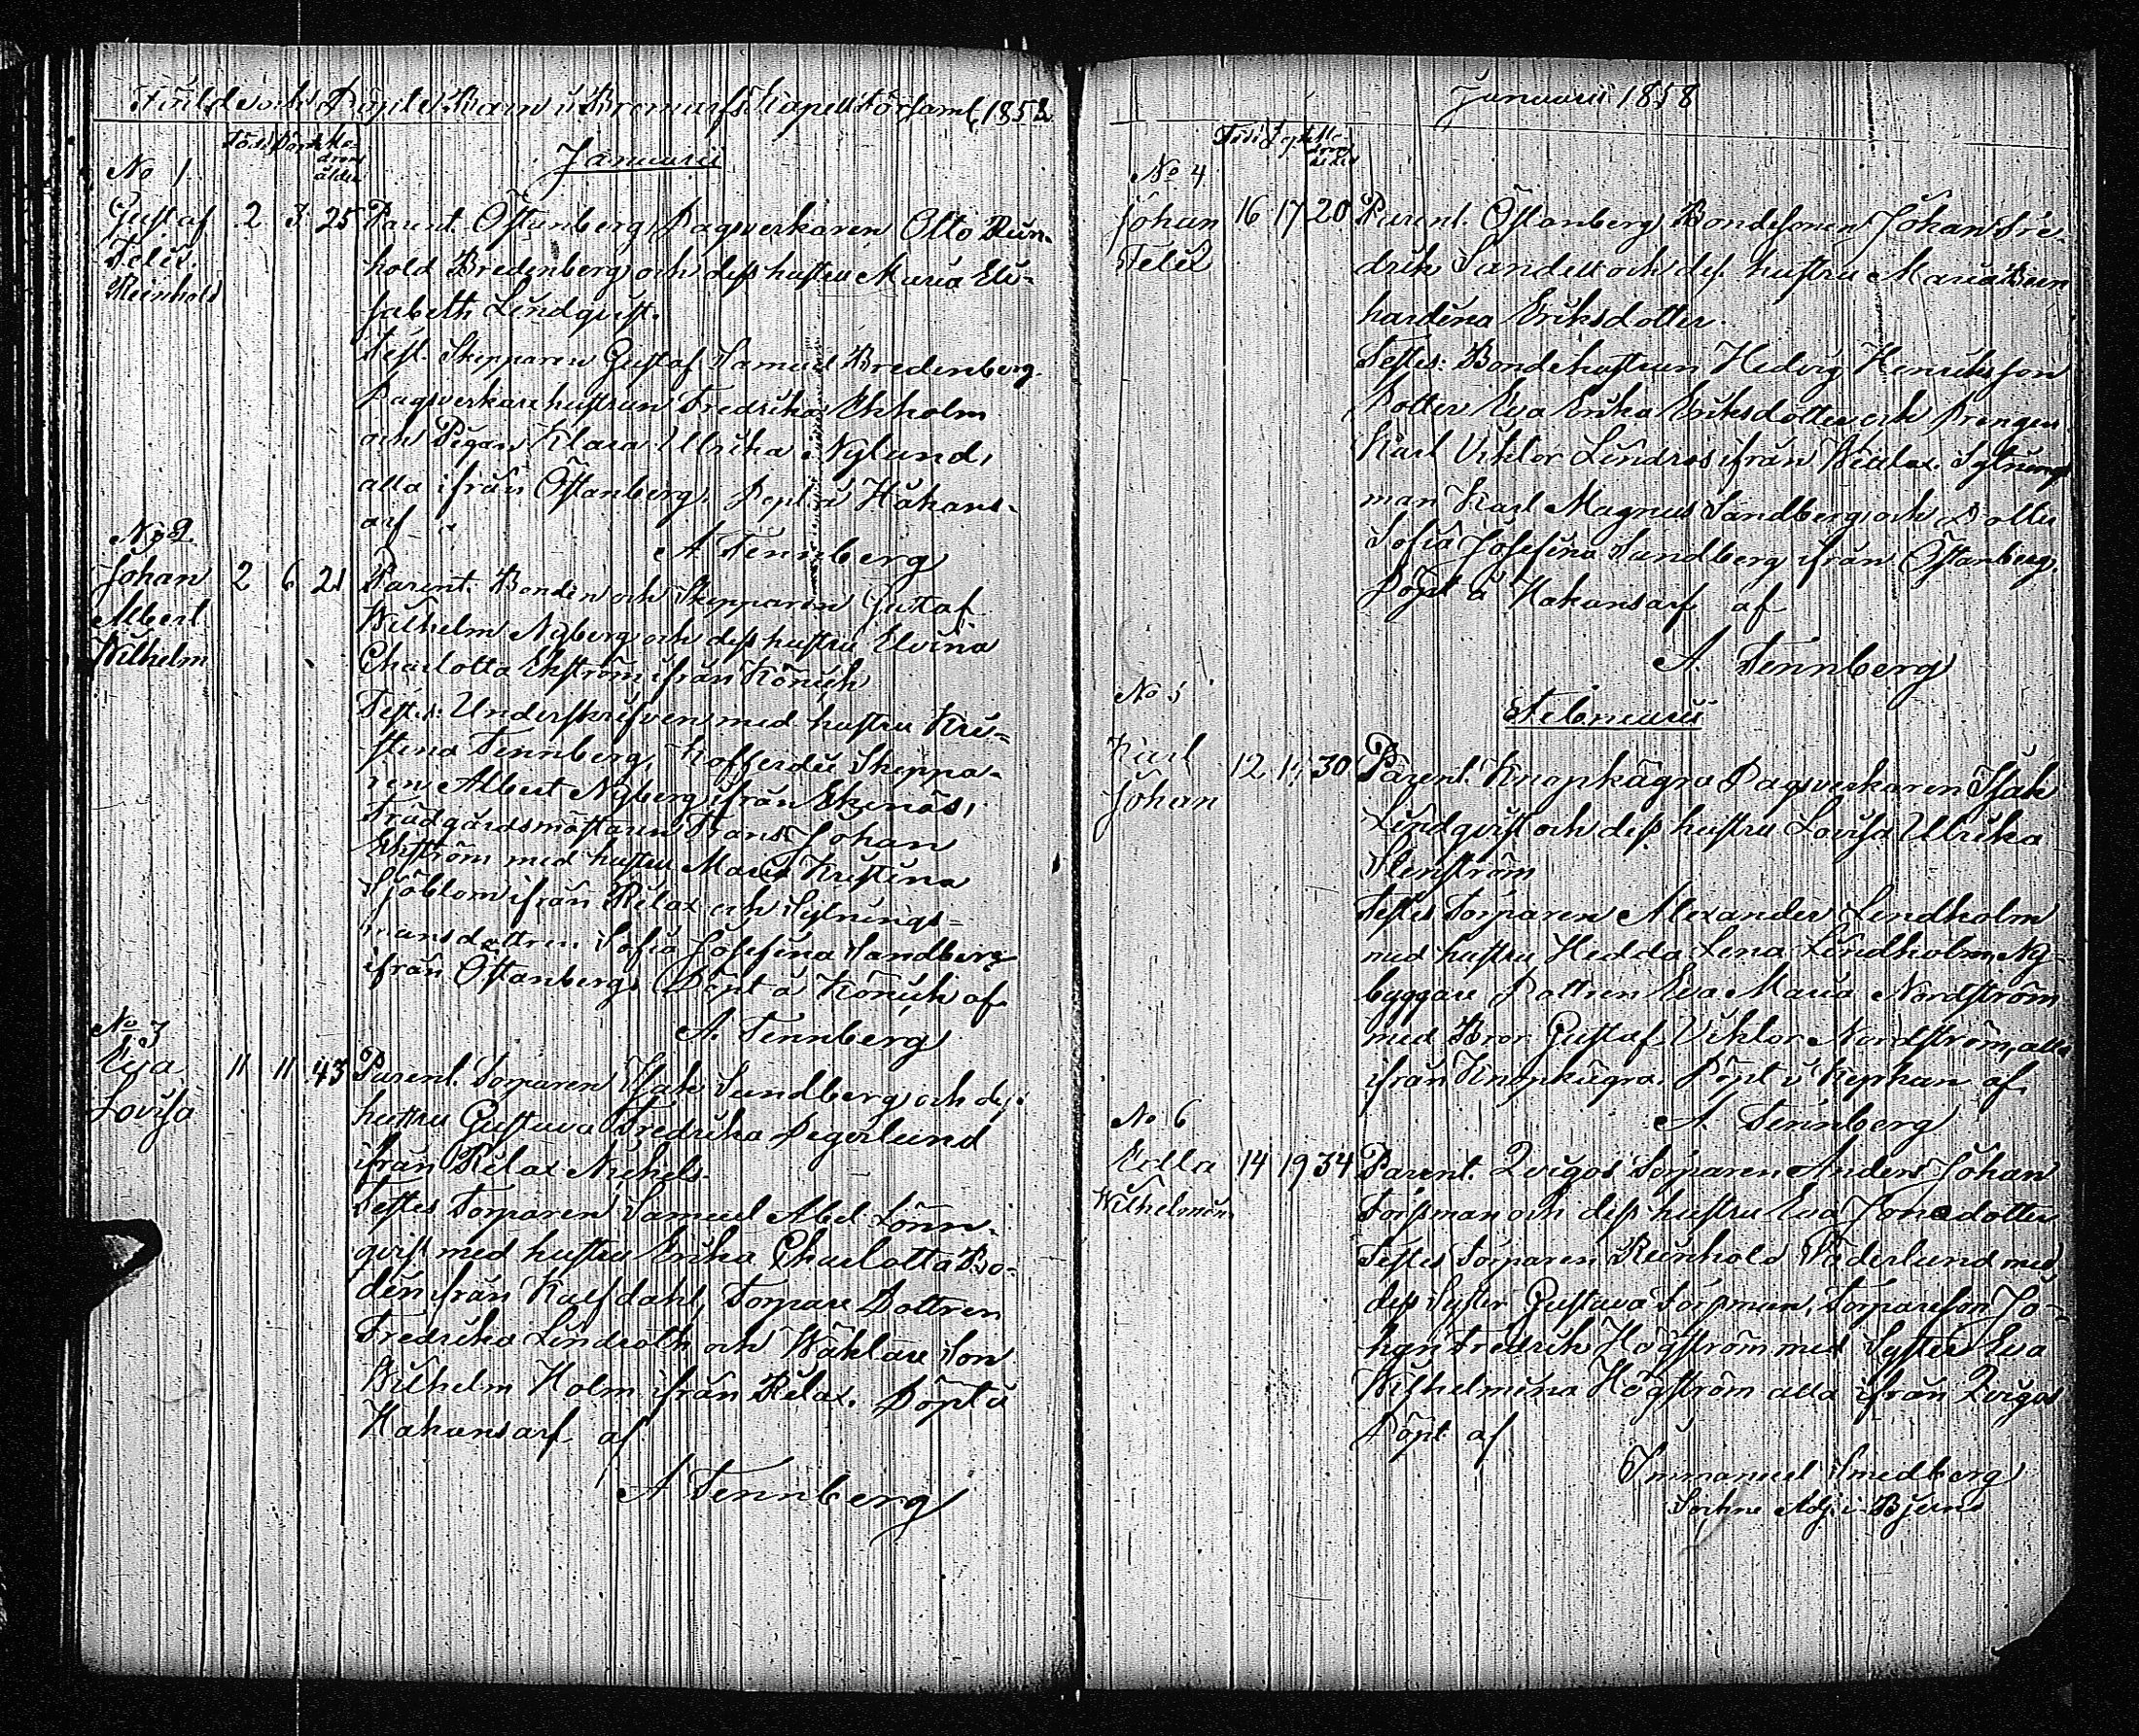 Födde och Döpte Barn i Bromarfs Kapell Församl. 1858
Född Döpt Mo-
drens
ålder
Januarii
No 1
Gustaf 2 3 25 Parent. Östanberg Dagsverkaren Otto Rein-
Felix hold Bredenberg och dess hustru Maria Eli-
Reinhold sabeth Lindqvist.
Test. Skepparen Gustaf Samuel Bredenberg.
Dagsverkarehustrun Fredrika Ekholm
och Pigan Klara Ullrika Nylund,
alla ifrån Östanberg. Döpt å Håkans-
arf
A Tennberg
No 2
Johan 2 6 21 Parent. Bonden och Skepparen Gustaf
Albert Wilhelm Nyberg och dess hustru Elvina
Wilhelm Charlotta Ekström ifrån Könick
Test.s: Underskrifven med hustru Kri-
stina Tennberg, Kofferdie Skeppa-
ren Albert Nyberg ifrån Ekenäs,
Trädgårdsmästaren Frans Johan
Ekström med hustru Maria Kristina
Sjöblom ifrån Rilax och Sytnings-
mansdottren Sofia Josefina Sandberg
ifrån Östanberg. Döpt å Könick af
A. Tennberg
No 3
Eva 11 11 43 Parent. Torparen Isak Sundberg och dess
Lovisa hustru Gustava Fredrika Degerlund
ifrån Rilax Nickels.
Testes Torparen Samuel Abel Lönn-
qvist med hustru Erika Charlotta Bo-
dén ifrån Kalfdahl, Torpare Dottren
Fredrika Lindroth och Wäktare Son
Wilhelm Holm ifrån Rilax. Döpt å
Håkansarf af
A Tennberg
Januarii 1858
Född Döpt Mo-
drens
ålder
No 4
Johan 16 17 20 Parent. Östanberg Bondesonen Johan Fre-
Felix drik Sandell och dess hustru Maria Bern
hardina Eriksdotter.
Testes: Bondehustrun Hedvig Henriksson
Dotter Eva Erika Eriksdotter och Drengen
Karl Viktor Lindros ifrån Rilax. Sytnings
man Karl Magnus Sandberg och Dotter
Sofia Josefina Sandberg ifrån Östanberg.
Döpt å Håkansarf af
A. Tennberg
No 5
Februarii
Karl 12 30 Parent. Knopkägra Dagsverkaren Isak
Johan Lindqvist och dess hustru Lovisa Ulrika
Stenström
Testes Torparen Alexander Lindholm
med hustru Hedda Lena Lindholm, Ny-
byggare Dottren Eva Maria Nordström
med Bror Gustaf Viktor Nordström, alla
ifrån Knopkägra. Döpt i Kyrkan af
A. Tennberg
No 6
Edla 14 19 34 Parent. Qvigos Torparen Anders Johan
Wilhelmina Torpman och dess hustru Eva Jonsdotter
Testes Torparen Reinhold Söderlund med
dess Syster Gustava Torpman, Torpareson Jo-
han Fredrik Högström med Syster Eva
Wilhelmina Högström alla ifrån Qvigos
Döpt af
Immanuel Smedberg
Sockne Adj. i Bjerno